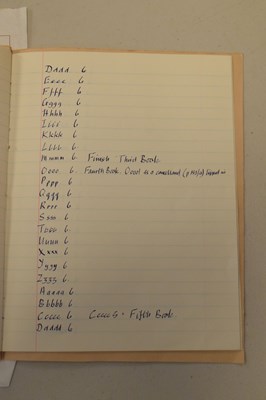 Dddd 6
Eeee 6
Ffff 6
Gggg 6
Hhhh 6
Iiii 6
Kkkk 6
Llll 6
Mmmm Finish Third Book
Oooo Fourth Book. Oooo1 is a
Pppp 6
Qqqq 6
Rrrr 6
Ssss 6
Tttt 6
Uuuu 6
Xxxx 6
Yyyy 6
Zzzz 6
Aaaaa 6
Bbbbb 6
Ccccc 6 Ccccc 5 - Fifth Book.
Ddddd 6